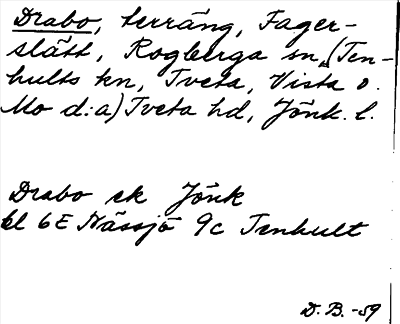 Drabo, terräng, Fager-
slätt, Rogberga sn, (Ten-
hults kn, Tveta, Vista o.
Mo d:a) Tveta hd, Jönk. l.
Drabo ek Jönk
bl 6E Nässjö 9c Tenhult
D. B. -59